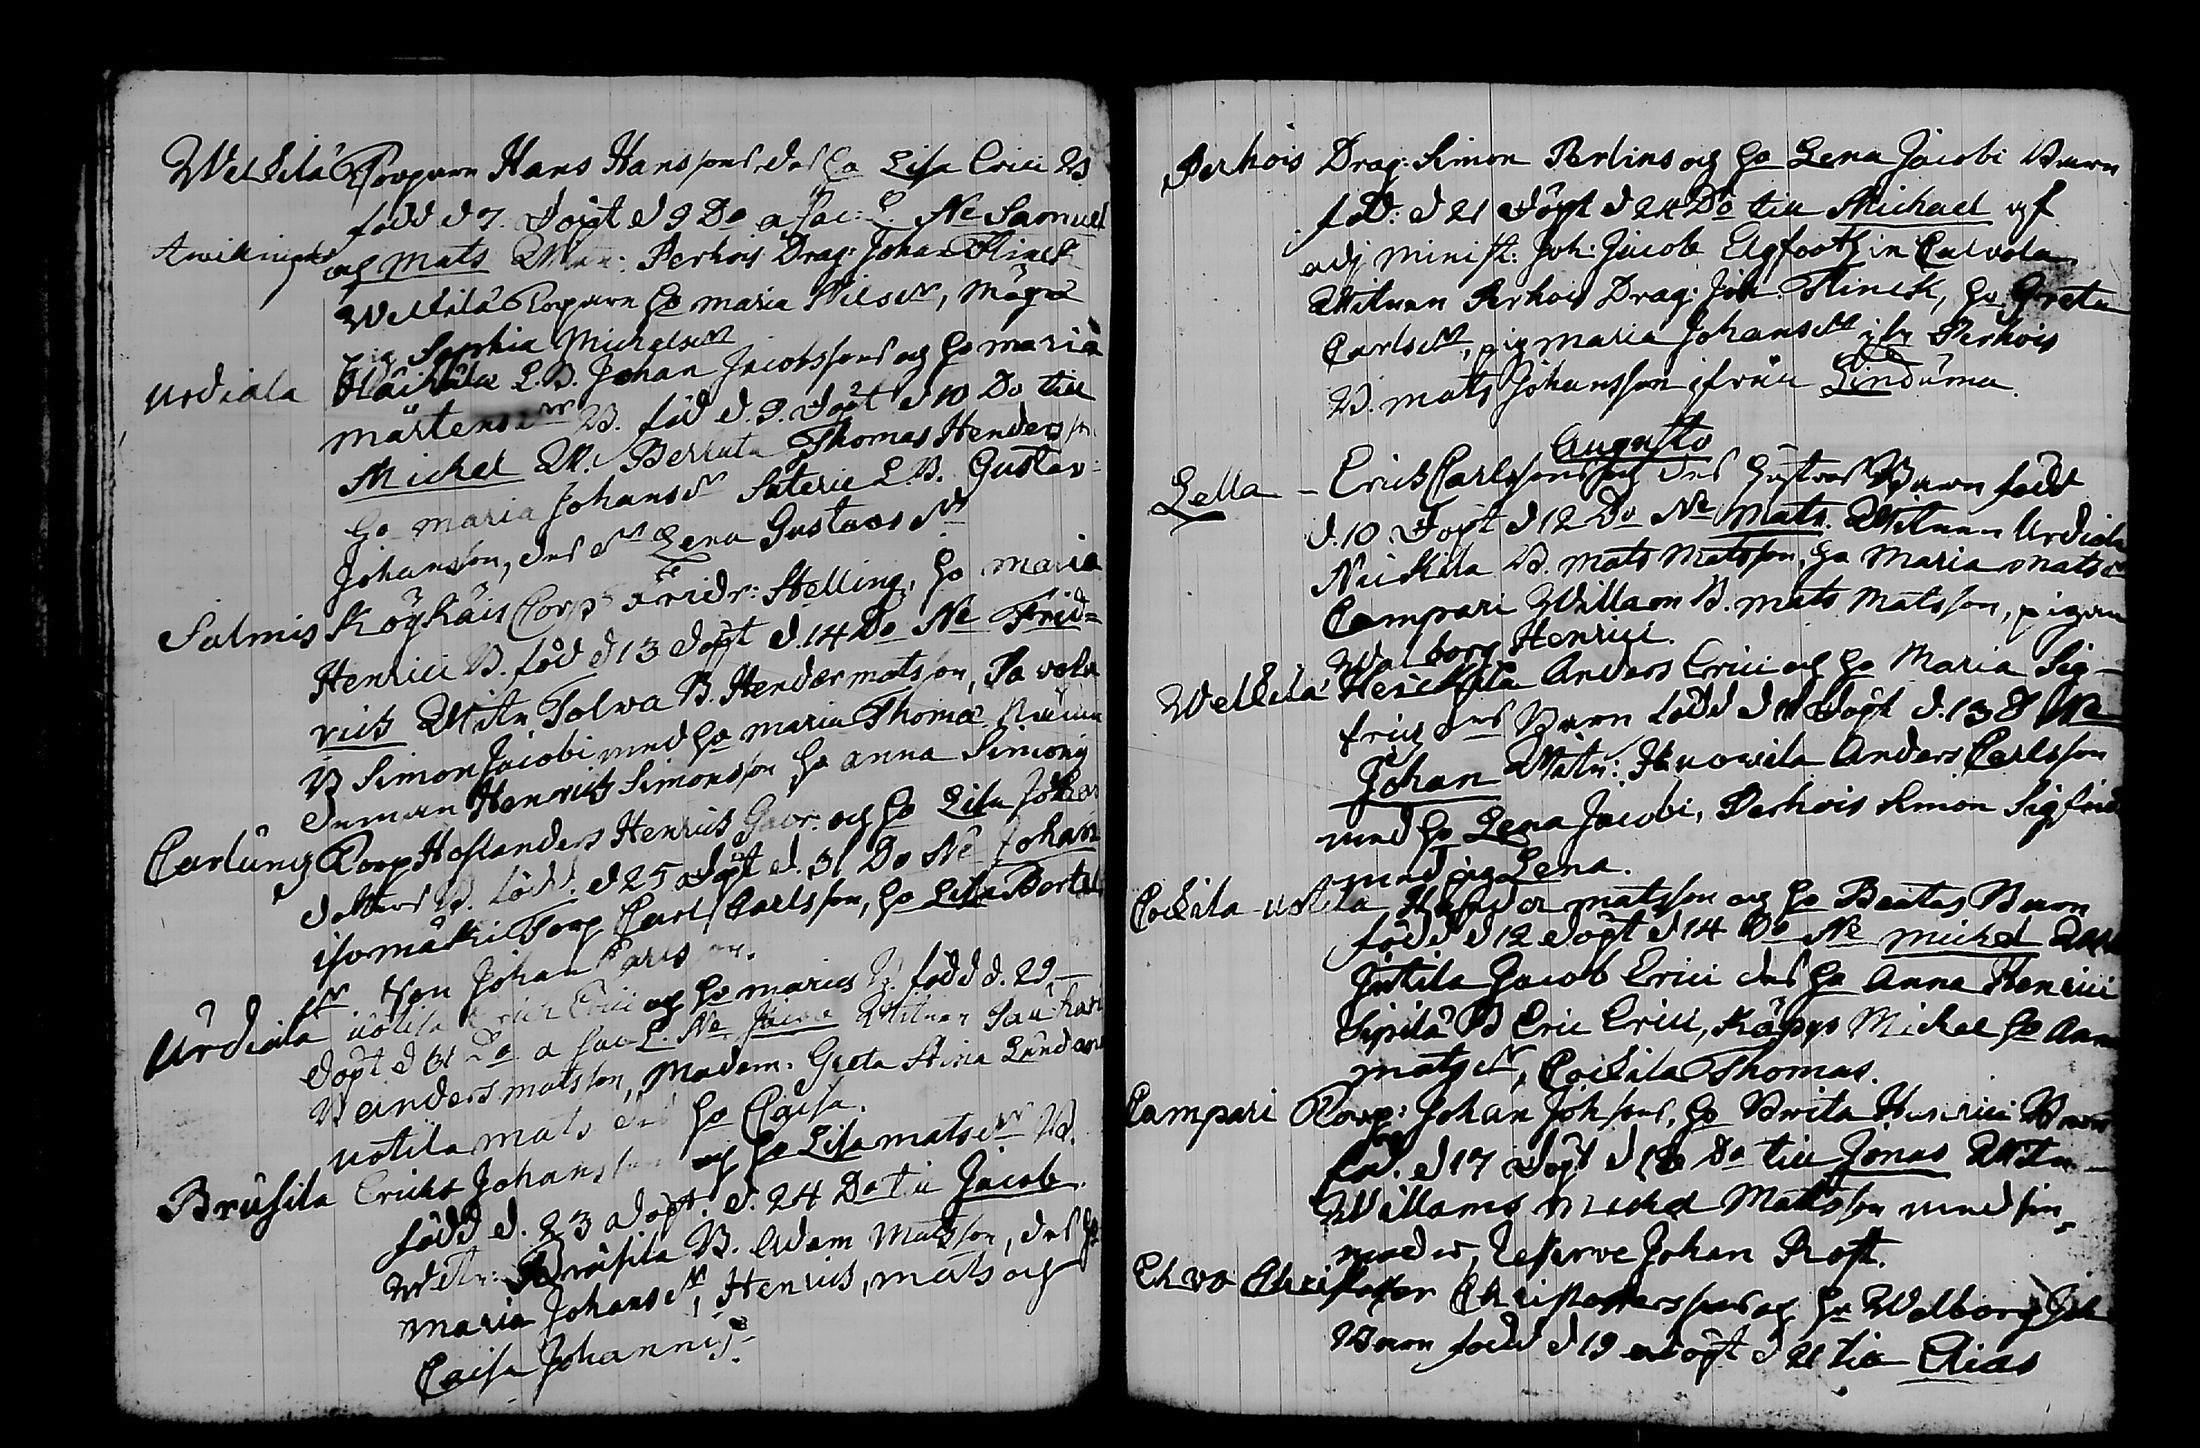 Wellilä Torparn Hans Hanssons das ho Lisa Erici B.
född d 7. döpt d 9 Do a sac: L. Ne Samuel
twillingar och Mats Witn: Perhois Drag: Johan Flinck
Wellilä Torparn ho Maria Nilsdr, Mågen
pig Sophia Michelsdr
Urdiala L. B. Johan Jacobssons och ho Maria
Mårtensdr B. föd d. 9. döpt d 10 Do till
Michel W. Thomas Henders son
ho Maria Johansdr Saterie L. B. Gustav
Johansson, das dr Lena Gustavs dr
Salmis Köyhäis Corp Fridr: Helling, ho Maria
Henrici B. född d 13 döpt d. 14 Do Ne Frid=
rich Witn Tolwa B. Hender Matsson,
B Simon Jacobi med ho Maria Thomæ
Inman Henrich Simonsson ho Anna Simonis
Carlung Torp Henrich Gabr. och ho Lisa Johans
dotters B. född d 25 döpt d. 31 Do Ne Johan
isomäki Torp Carl Carlsson, ho Lisa Bertils
dr Son Johan Carlsson.
Urdiala uotila Erich Erici och ho Marias B. född d. 29
döpt d 31 Do a sac L. Ne Jacob Witnen
B Anders Matsson, Madam. Greta Stina
uotila Mats das ho Caisa.
Brusila Erichs Johansson och ho Lisa Matsdr B.
född d. 23 döpt. d. 24 Do till Jacob.
Witn: Brusila B. Adam Matsson, das ho
Maria Johansdr, Henrich, Mats och
Caisa Johannis.
Perhois Drag: Simon Perlins och ho Lena Jacobi Barn
föd: d 21 döpt d 24 Do till Michael af
adj Minist: Joh: Jacob Elgfooth in Calvola
Witnen Perhois Drag: Joh Flinck, ho Greta
Carlsdr, pig Maria Johansdr ifr Perhois
B. Mats Johansson ifrån Linduma.
Augusto
Lella - Erich Carlssons och das hustrus Barn född
d. 10 döpt d 12 Do Ne Mats. Witnen Urdiala
Nuickila B. Mats Matsson, ho Maria Matsdr
Campari Willam B. Mats Matsson, pigan
Walborg Henrici.
Wellilä Heickilä Anders Erici och ho Maria Sig-
frids das Barn född d 11 döpt d. 13 D Ne
Johan Witn: Anders Carlsson
med ho Lena Jacobi, Perhois Simon Sigfrids
med pig Lena.
Cockila uotila Hender Matsson och ho Beatas Barn
född d 12 döpt d 14 Do Ne Michel Witn
Jutila Jacob Erici das ho Anna Henrici
Sipilä B Eric Erici, Käpys Michel ho Anna
Matsdr, Cockila Thomas.
Campari Torp: Johan Johsons, ho Brita Henrici Barn
föd. d 17 döpt d 18 Do till Jonas Witn
Willams Michel Matsson med sin
moder, Reserve Johan Rost.
Chvo Christopher Christopherssons och ho Walborg Joh
Barn född d 19 döpt d 21 till Elias